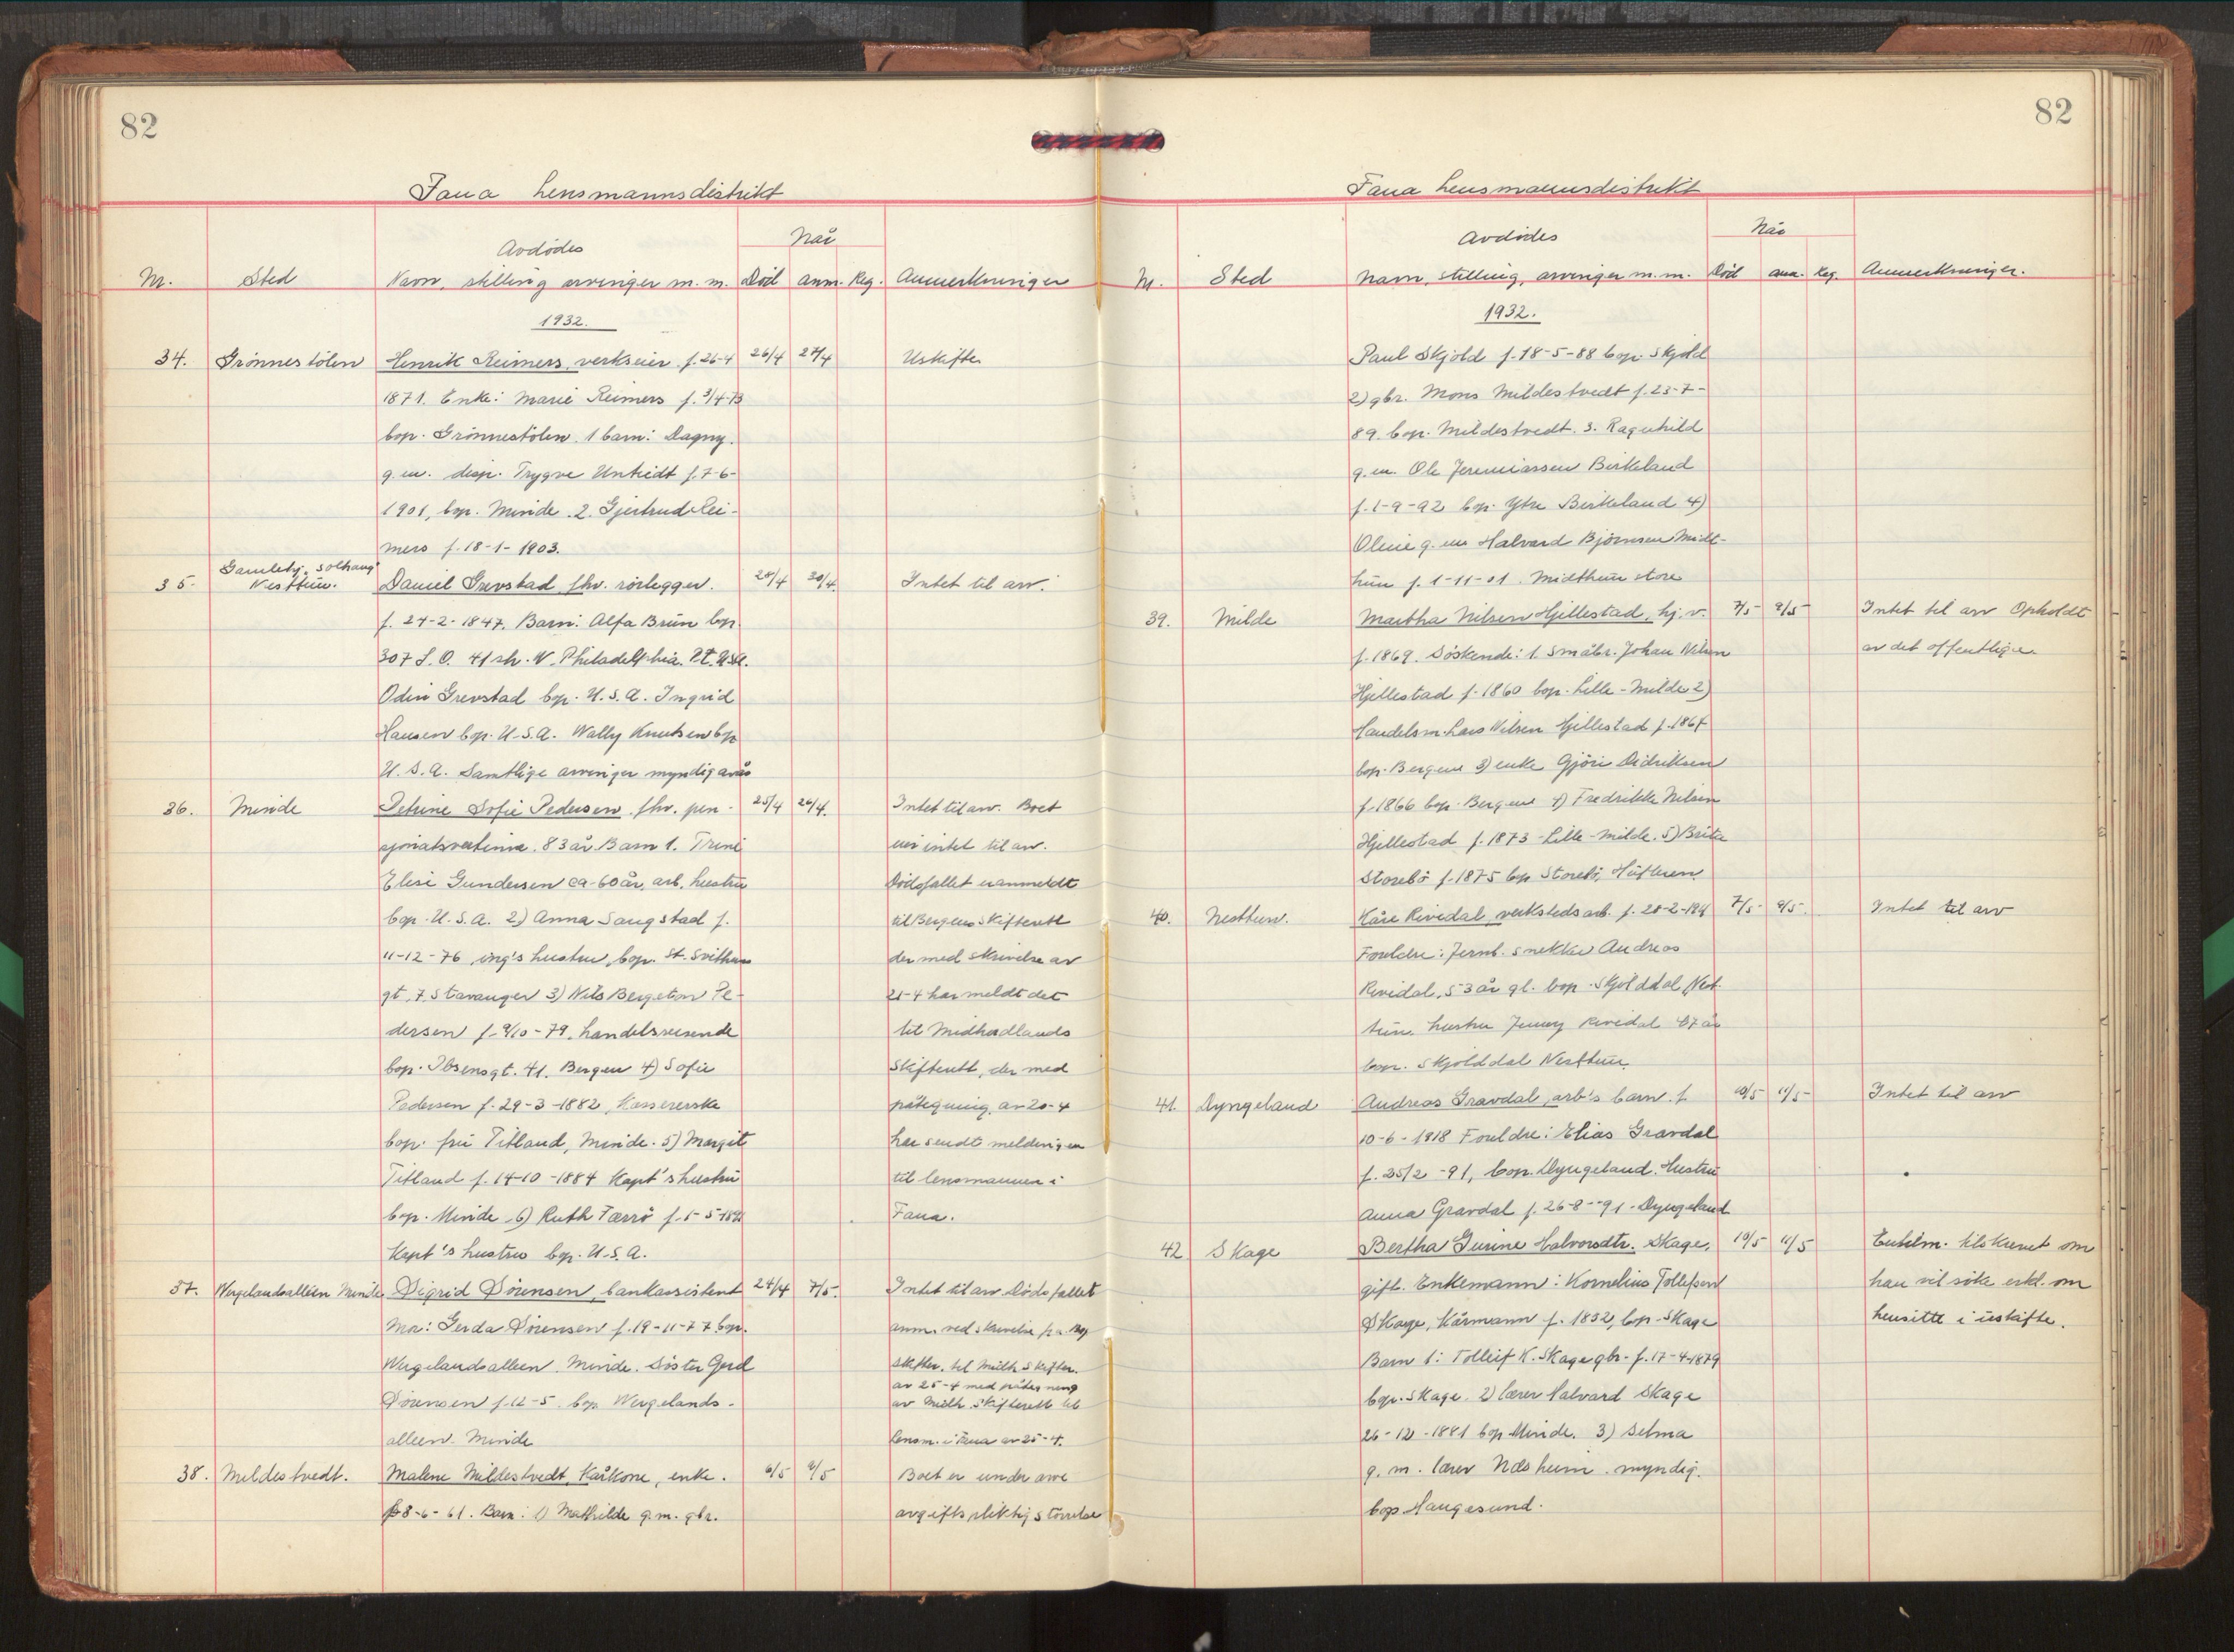 82
Fana Lensmannsdistrikt
Avdødes
Når
Nr. Sted Navn, stilling arvinger m. m. Død anm. Reg. Anmerkninger
1932.
34. Grönnestölen Henrik Reimers, verkseier f. 26-4 26/4 27/4 Uskifte
1871. Enke: Marie Reimers f. 3/4-73
bop. Grönnestölen. 1 barn: Dagny.
g.m. disp. Trygve Untiedt f. 7-6-
1901, bop. Minde. 2. Gjertrud Rei-
mers f. 18-1-1903.
Gamlehj. Solhaug
35. Nesttun. Daniel Grevstad fhv. rörlegger. 28/4 30/4 Intet til arv.
f. 24-2-1847. Barn: Alfa Brun bop.
307 S. O. 41 sh. W. Philadelphia. Pt. U.S.A.
Odin Grevstad bop. U.S.A. Ingrid
Hansen bop. U.S.A. Wally Knutsen bop
U.S.A. Samtlige arvinger myndig
36. Minde Petrine Sofie Pedersen, fhv. pen- 25/4 26/4. Intet til arv. Boet
sjonatsvertinne. 83 år. Barn 1. Trine
eier intet til arv.
Elise Gundersen ca-60 år, arb. hustru
Dödsfallet er anmeldt
bop. U.S.A. 2) Anna Saugstad f.
til Bergens Skifterett
11-12-76 ing's hustru, bop. St. Svithuns
der med skrivelse av
gt. 7. Stavanger 3) Nils Bergeton Pe-
21-4 har meldt det
dersen f. 9/10-79, handelsreisende
til Midhordlands
bop. Ibsensgt. 41. Bergen 4) Sofie
Skifterett, der med
Pedersen f. 29-3-1882, Kassererske
påtegning av 20-4
bop. frü Titland, Minde. 5) Margit
har sendt meldingen
Titland f. 14-10-1884 Kapt's hustru
til lensmannen i
bop. Minde 6) Ruth Færrö f. 5-5-18
Fana.
Kapt's hustru bop. U.S.A.
37. Wergelandsalleen Minde Sigrid Sörensen, bankassistent 24/4 7/5. Intet til arv Dödsfallet
Mor: Gerda Sörensen f. 19-11-77 bop.
anm. ved skrivelse fra Bg
Wergelandsalleen. Minde. Söster Gerd
Skifter. til Midh. Skifter.
av 25-4 med påtegning
Sörensen f. 12-5. bop. Wergelands-
av Midh. Skifterett til
alleen. Minde
lensm. i Fana av 25-4.
38. Mildestvedt. Malene Mildestvedt, Kårkone, enke. 6/5 9/5 Boet er under arve
f 8-6-61. Barn: 1) Mathilde g.m. gbr.
avgiftspliktig störrelse
82
Fana Lensmannsdistrikt
Avdödes
Når
Nr. Sted Navn, stilling, arvinger m. m. Död anm. Reg. Anmerkninger.
1932.
Paul Skjold f. 18-5-88 bop. Skjold
2) gbr. Mons Mildestvedt f. 23-7-
89. bop. Mildestvedt. 3. Ragnhild
g.m. Ole Jeremiassen Birkeland
f. 1-9-92 bop. Ytre Birkeland 4)
Oline g. m Halvard Björnsen Midt-
hun f. 1-11-01. Midthun store
39. Milde Martha Nilsen Hjellestad, hj. v. 7/5 9/5 Intet til arv Opholdt
f. 1869. Söskende: 1. Småbr. Johan Nilsen
av det offentlige.
Hjellestad f. 1860 bop. Lille-Milde 2)
Handelsm. Lars Nilsen Hjellestad f. 1867
bop. Bergen 3) enke Gjöri Didriksen
f. 1866 bop. Bergen 4) Fredrikke Nilsen
Hjellestad f. 1873 Lille-Milde. 5) Brite
Storebö f. 1875 bop Storebö, Hüftern.
40. Nesttun. Kåre Rividal, verkstedsarb. f. 28-2-19 7/5 9/5. Intet til arv
Foreldre: Jernb. snekker Andreas
Revidal, 53 år gl. bop. Skjolddal, Nest
tun. hustru Jenny Revidal 47 år
bop. Skjolddal Nesttun.
41. Dyngeland Andreas Gravdal, arb's barn. f. 10/5 11/5 Intet til arv
10-6-1918 Foreldre: Elias Gravdal
f. 25/2-91, bop. Dyngeland. Hustru
Anna Gravdal f. 26-8-91. Dyngeland
42 Skage Bertha Gurine Halvorsdtr. Skage, 10/5 11/5 Enkem. tilskrevet om
gift. Enkemann: Kornelius Tollefsen
han vil söke erkl. om
Skage, Kårmann f. 1852, bop. Skage
hensitte i uskifte.
Barn 1: Tolleif K. Skage gbr. f. 17-4-1879
bop. Skage. 2) lærer Halvard Skage
26-12-1881 bop Minde. 3) Selma
g. m. lærer Næsheim. myndig.
bop. Haugesund.